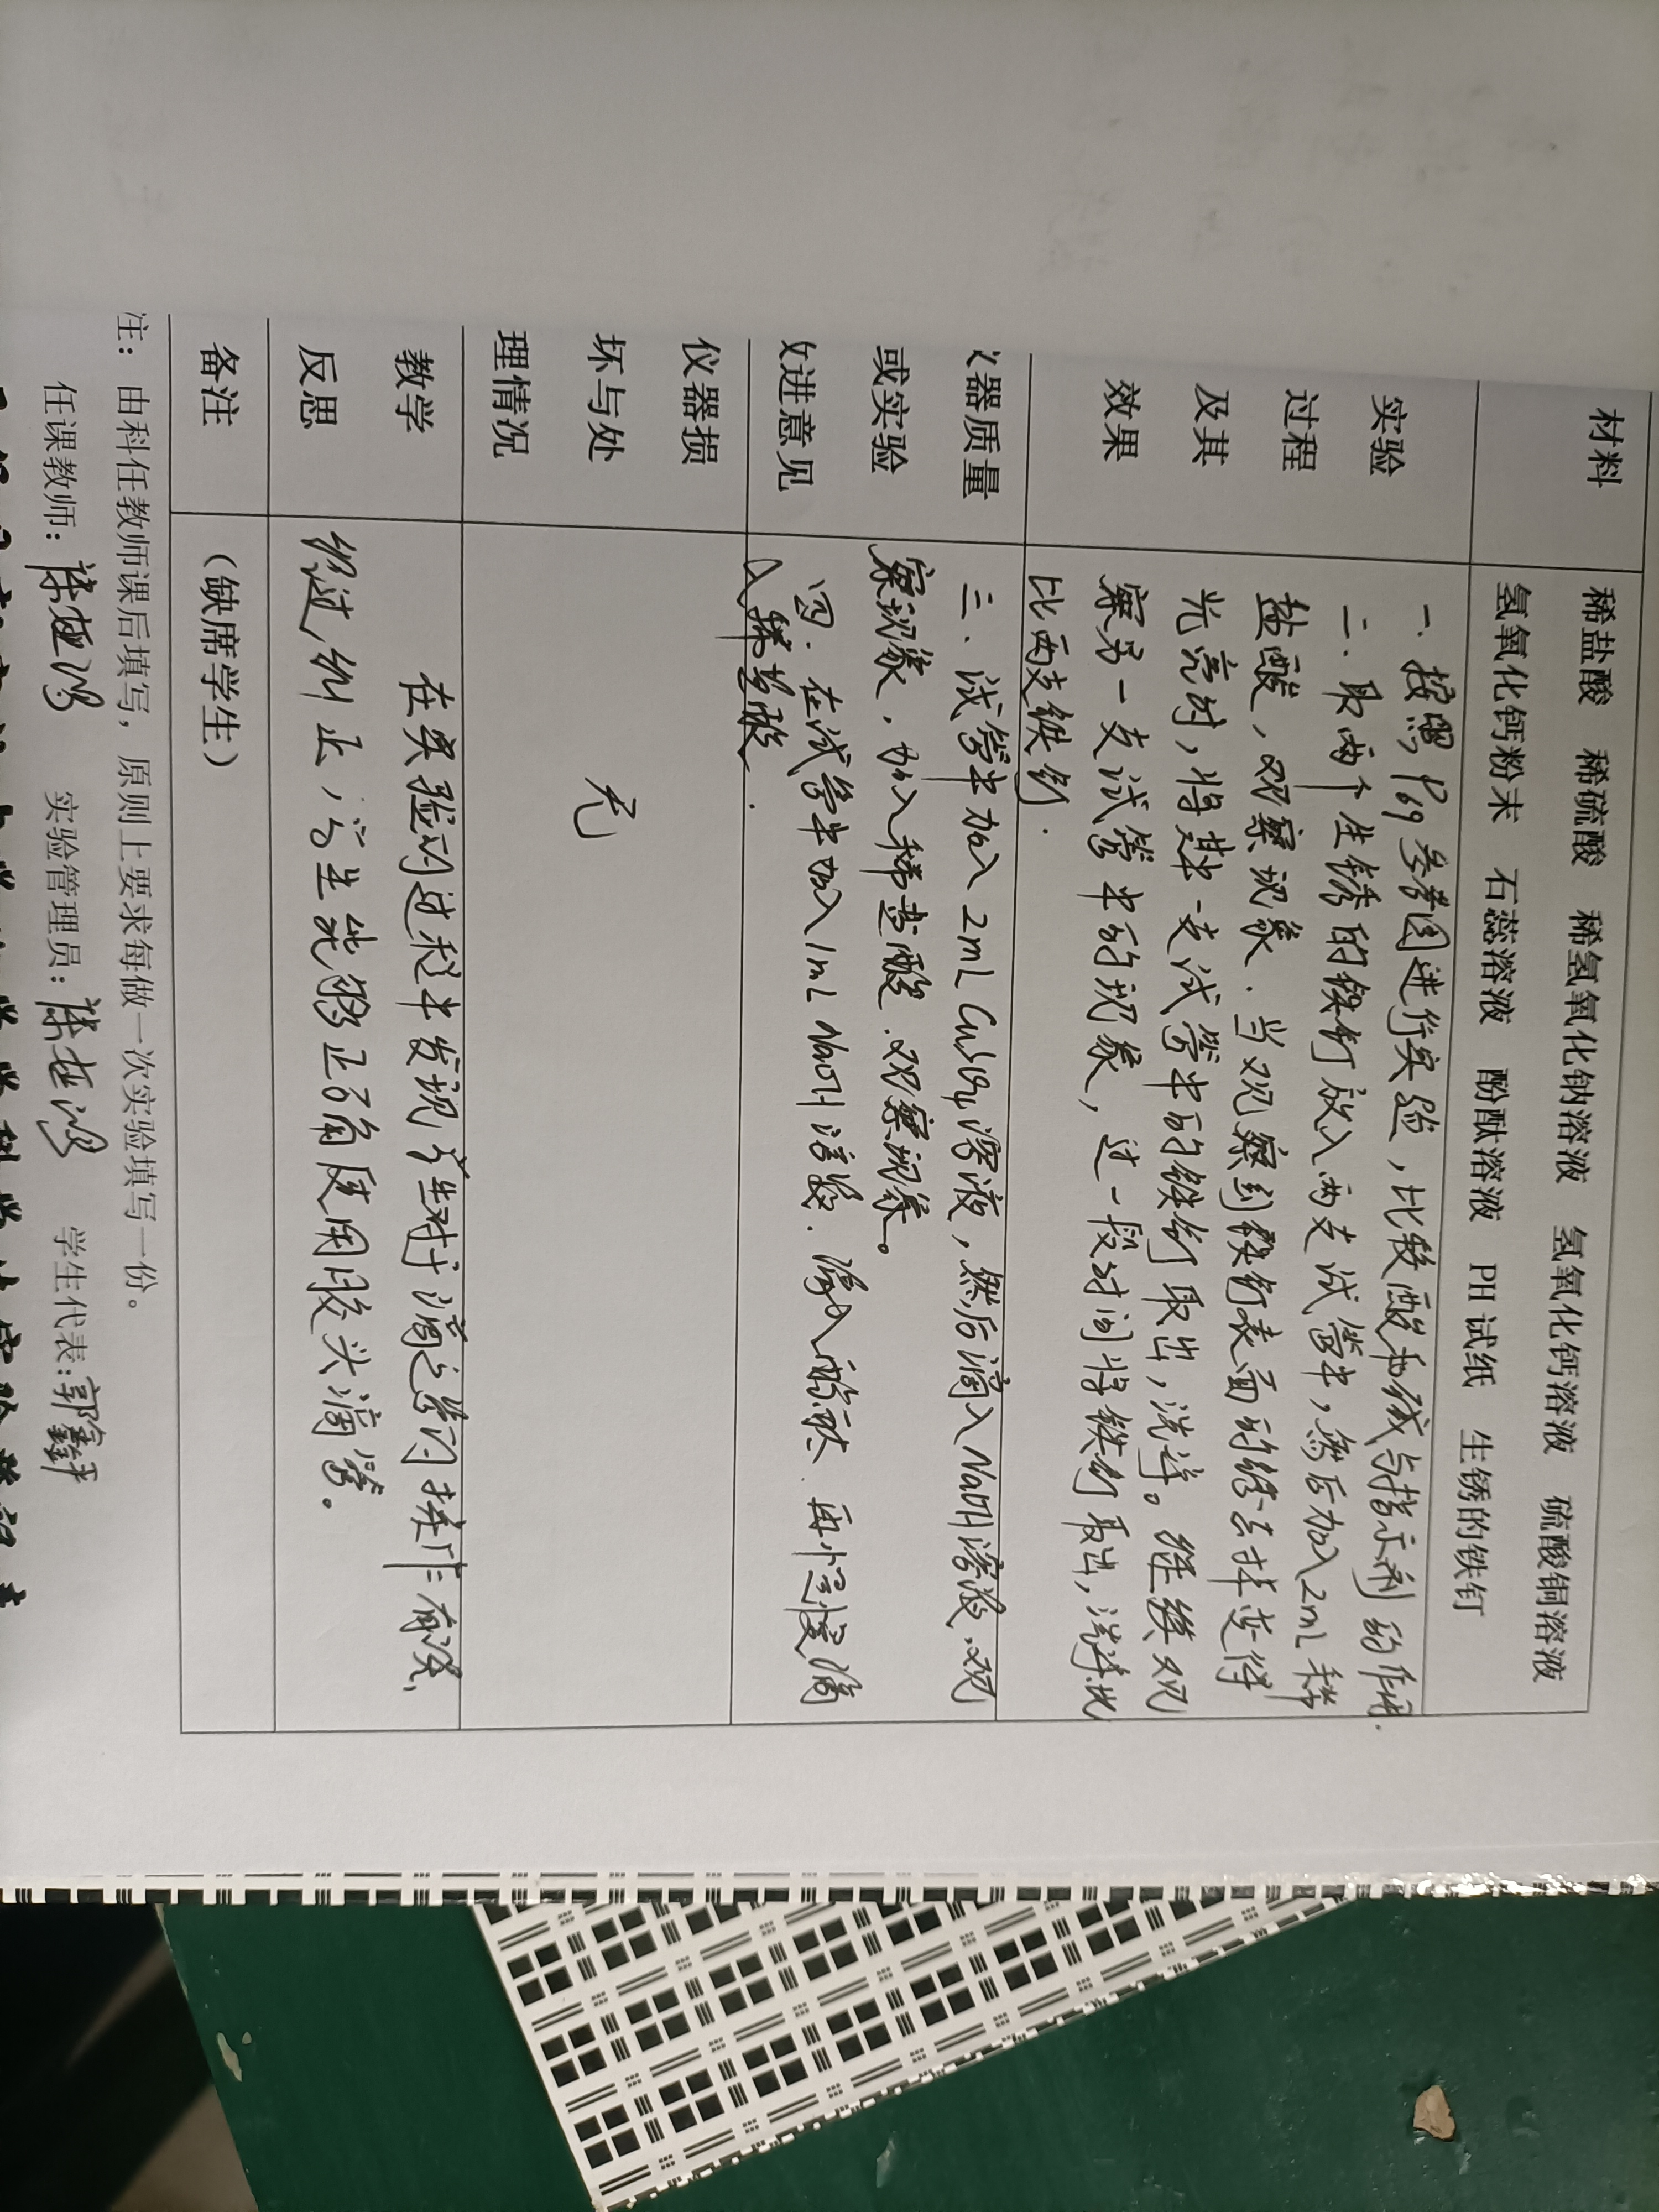 材料
稀盐酸 稀硫酸 稀氢氧化钠溶液 氢氧化钙溶液 硫酸铜溶液
氢氧化钙粉末 石蕊溶液 酚酞溶液 PH试纸 生锈的铁钉
实验
过程
及其
效果
一、按照P69参考图进行实验，比较酸和碱与指示剂的作用.
二、取两个生锈的铁钉放入两支试管中，然后加入2mL稀
盐酸，观察现象.当观察到铁钉表面的锈去掉变得
光亮时，将其中一支试管中的铁钉取出，洗净。继续观
察另一支试管中的现象，过一段时间将铁钉取出，洗净比
比两支铁钉.
仪器质量
或实验
改进意见
三、试管中加入2mL CuSO4溶液，然后滴入NaOH溶液，观
察现象，加入稀盐酸，观察现象。
四、在试管中加入1mL NaOH溶液.滴入酚酞.再慢慢滴
入稀盐酸.
仪器损
坏与处
理情况
无
教学
反思
在实验的过程中发现学生对于滴定管的操作有误，
经过纠正，学生能够正确使用胶头滴管。
备注
（缺席学生）
注：由科任教师课后填写，原则上要求每做一次实验填写一份。
任课教师： 实验管理员： 学生代表：郭鑫